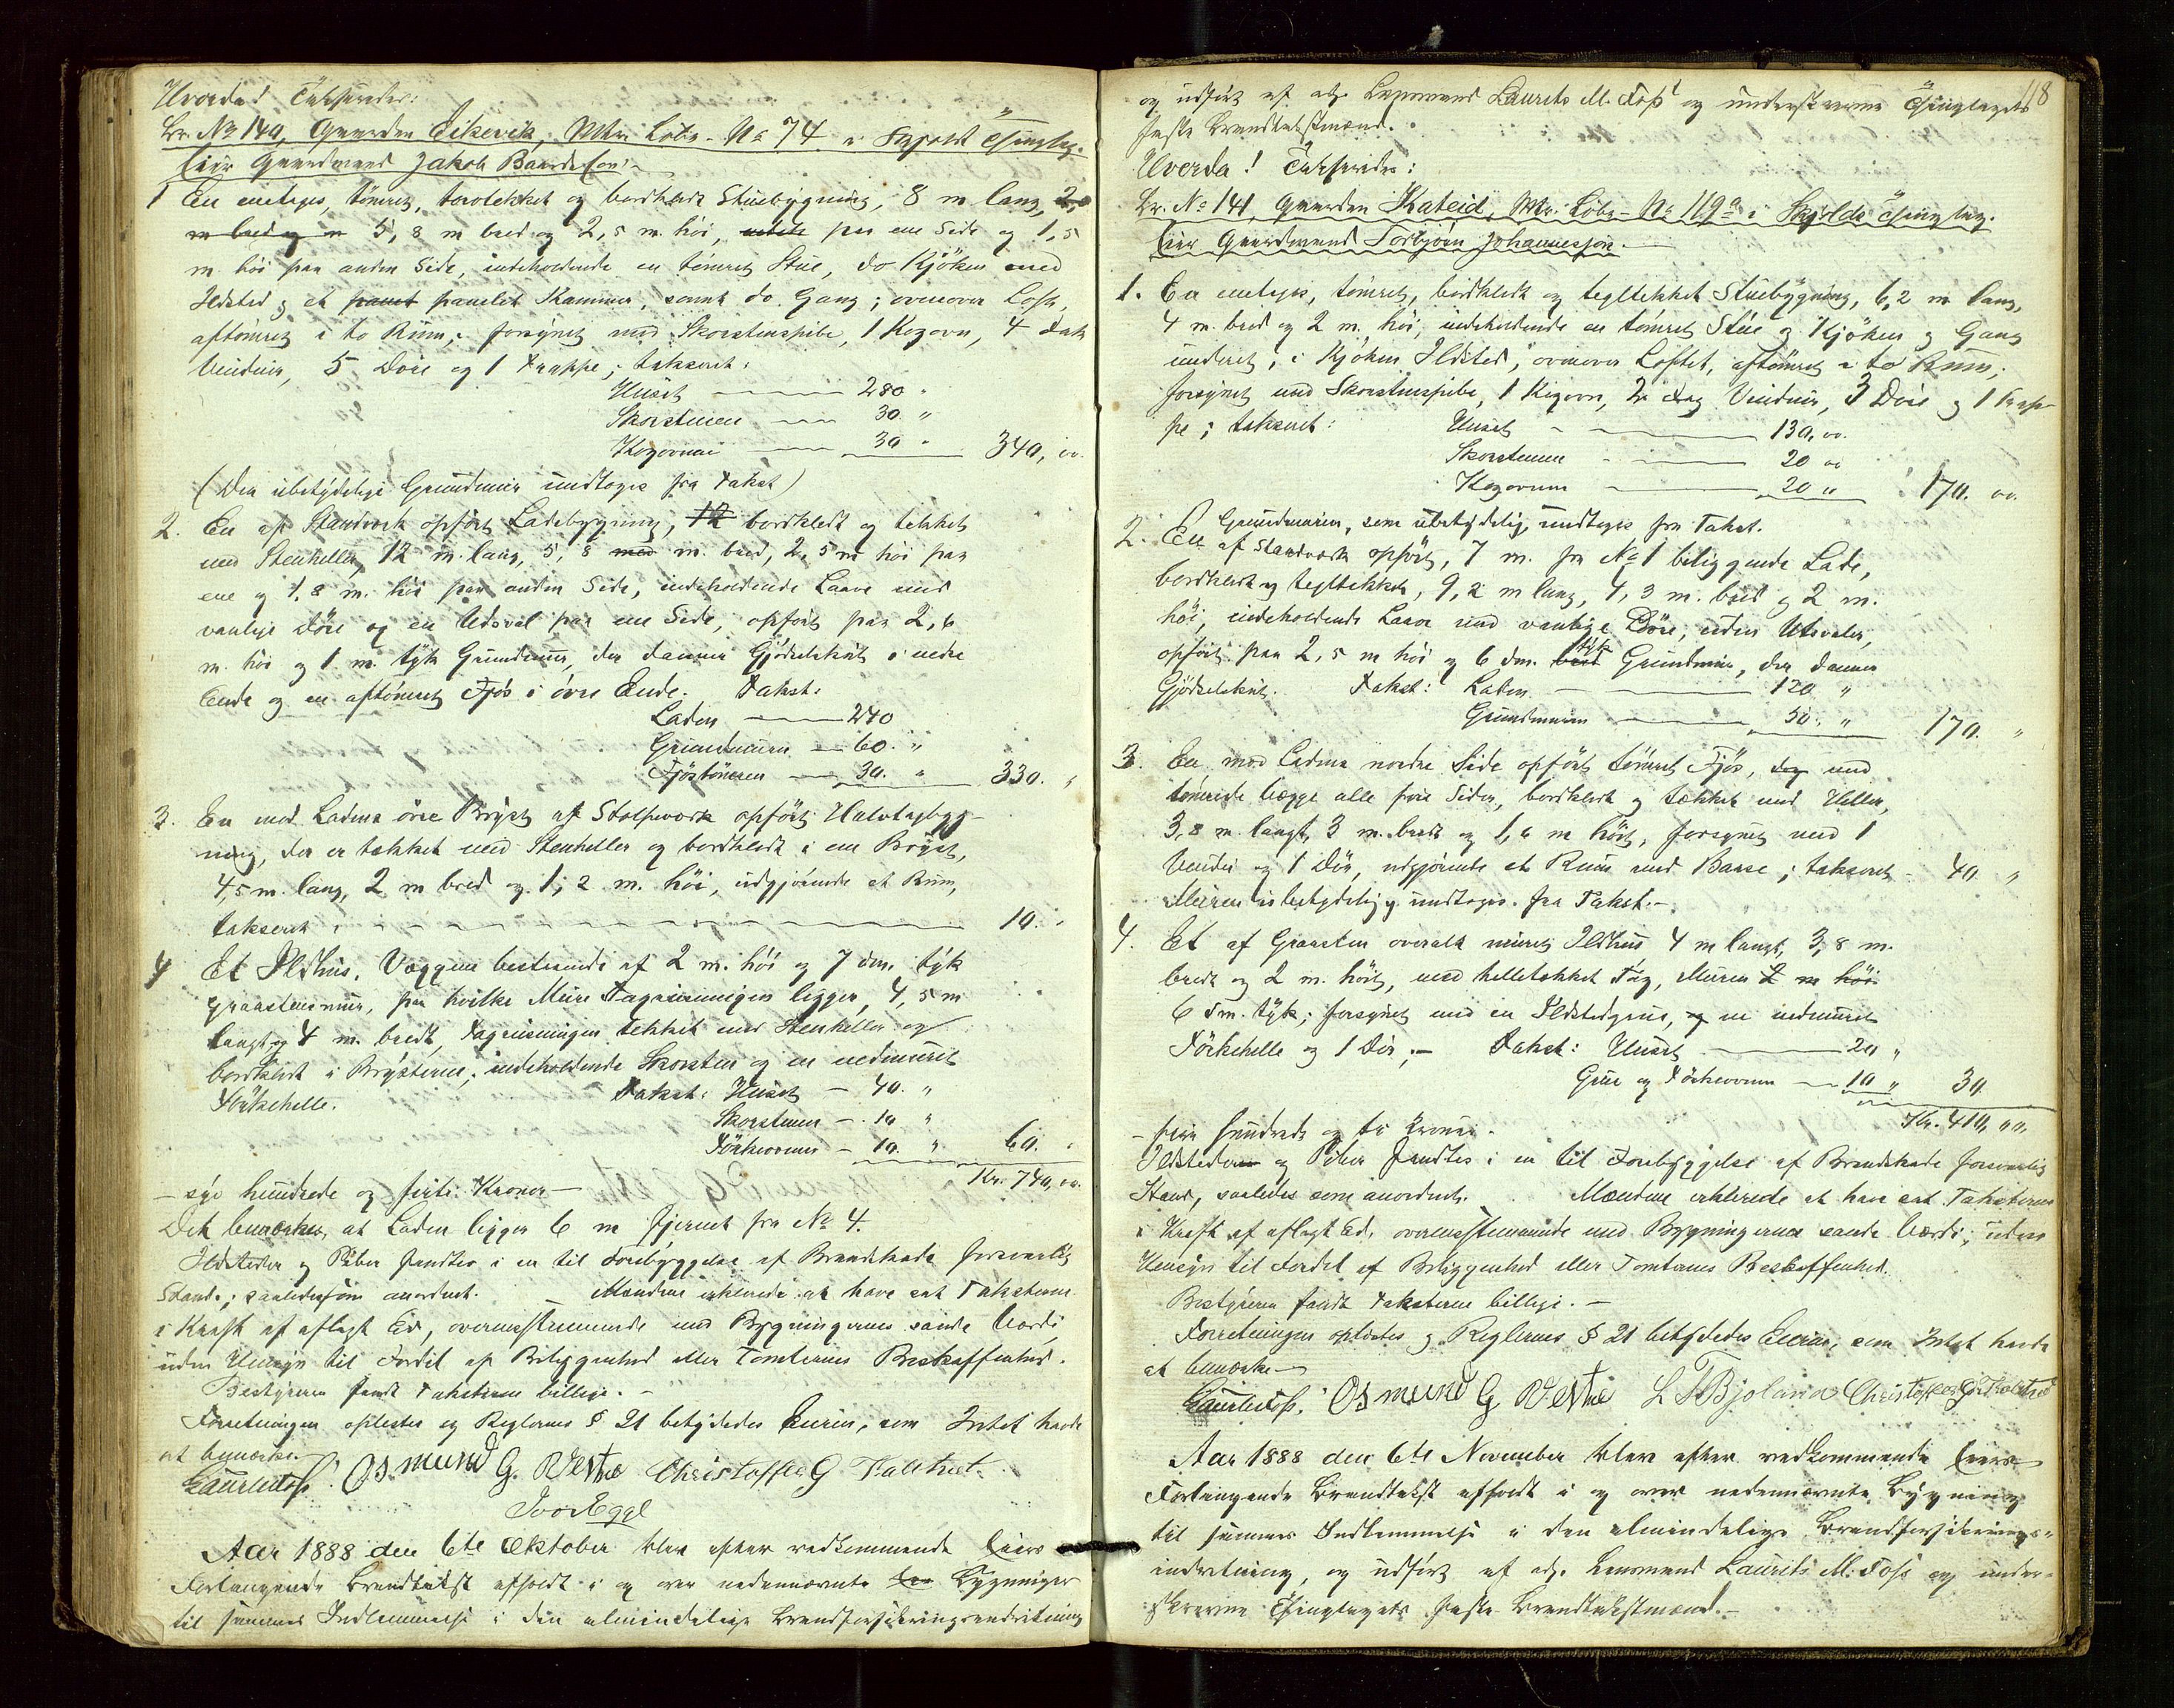 Hvorda! Taksender:
Br. No 140, Gaarden Eikevik, Mtr. Løbe-No 74 i Skjold Thinglag.
Eier Gaardmand Jakob Baardsen:
1 En eneetages, tømret, torvtekket og bordklædt Stuebygning, 8 m lang, 2,
m bred og m 5,8 m bred og 2,5 m. høi, paa ene Side og 1,5
m. høi paa anden Side, indeholdende en tømret Stue, do Kjøken med
Ildsted og et panelet Kammer, samt do. Gang; ovenover Loft,
aftømret i to Rum; forsynet med Skorstenspibe, 1 Kogovn, 4 Fag
Vinduer, 5 Døre og 1 Trappe; takseret:
Huset 280 "
Skorstenen 30 "
Kogovnen 30 " 340, oo.
(Den ubetydelige Grundmur undtoges fra Takst)
2. En af Standverk opført Ladebygning, 12 bordklædt og tekket
med Stenheller, 12 m. lang, 5,8 med m. bred, 2,5 m høi paa
ene og 1,8 m. høi paa anden Side, indeholdende Laave med
vanlige Døre og en Udsval paa ene Side, opført paa 2,6
m. høi og 1 m. tyk Grundmur, der danner Gjødselskut i nedre
Ende og en aftømret Fjøs i øvre Ende. Takst:
Laden 240
Grundmuren 60 "
Fjøstømren 30. " 330. "
3. En med Ladens øvre Bryst af Stolpeværk opført Halvtagbyg-
ning, der er tækket med Stenheller og bordklædt i ene Bryst,
4,5 m. lang, 2 m bred og 1,2 m. høi, udgjørende et Rum,
takseret 10. "
4 Et Ildhus, Væggene bestaaende af 2 m. høi og 7 dm. tyk
Graastensmur, paa hvilke Mure Tagreisningen ligger, 4,5 m
langt og 4 m. bredt, Tagreisningen tekket med Stenheller og
bordklædt i Brysterne; indeholdende Skorsten og en nedmuret
Tørkehelle. Takst: Huset 40. "
Skorstenen 10 "
Tørkeovnen 10. " 60. "
Kr. 740, oo.
– syv hundrede og firti Kroner –
Det bemærkes, at Laden ligger 6 m fjernet fra No 4.
Ildsteder og Piber fandtes i en til Forebyggelse af Brandskade forsvarlig
Stand; saaledes som anordnet. Mændene erklærede at have sat Taksterne
i Kraft af aflagt Ed, overensstemmende med Bygningernes sande Værdi,
uden Hensyn til Fordel af Beliggenhed eller Tomternes Beskaffenhed.
Bestyreren fandt Taksterne billige. –
Forretningen oplæstes og Reglernes § 21 betydedes Eieren, som Intet havde
at bemærke.
Laur. M Foss. Osmund G. Vestre Christoffer G
Ivar
Aar 1888 den 6te Oktober blev efter vedkommende Eiers
Forlangende Brandtakst afholdt i og over nedennævnte Bygninger
til sammes Indlemmelse i den almindelige Brandforsikringsindretning
118
og udført af adj. Lensmand Laurits M. Foss og underskrevne Thinglagets
faste Brandtakstmænd.
Hvorda! Taksender:
Br. No 141, Gaarden Kateid, Mtr. Løbe-No 119a i Skjolds Thinglag.
Eier Gaardmand Torbjørn Johannesson.
1. En eneetages, tømret, bordklædt og tegltekket Stuebygning, 6,2 m lang,
4 m. bred og 2 m. høi, indeholdende en tømret Stue og Kjøken og Gang
underet; i Kjøken Ildsted, ovenover Loftet, aftømret i to Rum;
forsynet med Skorstenspibe, 1 Kogovn, 2 Fag Vinduer, 3 Døre og 1 Trap-
pe; takseret: Huset 130, oo.
Skorstenen 20 oo
Kogovnen 20 " 170. oo.
Grundmuren, som ubetydelig, undtoges fra Takst.
2. En af Standverk opført, 7 m. fra No 1 beliggende Lade,
bordklædt og tegltekket, 9,2 m lang, 4,3 m. bred og 2 m.
høi, indeholdende Laave med vanlige Døre, uden Utsvaler,
opført paa 2,5 m høi og 6 dm. bred tyk Grundmur, der danner
Gjødselskut. Takst: Laden 120 "
Grundmuren 50. " 170. "
3. En mod Ladens nordre Side opført tømret Fjøs, med
tømrede Vægge alle fire Sider, bordklædt og tækket med Heller,
3,8 m. langt, 3 m. bredt og 1,6 m høit, forsynet med 1
Vindu og 1 Dør, udgjørende et Rum med Baase; takseret 40 "
Muren ubetydelig undtoges fra Takst. –
4. Et af Graasten overalt muret Ildhus 4 m langt, 3,8 m.
bredt og 2 m. høit, med helletækket Tag, Muren 2 m høi
6 dm. tyk; forsynet med en Ildstedgrue, og en nedmuret
Tørkehelle og 1 Dør; – Takst: Huset 20 "
Grue og Tørkeovnen 10 " 30
Kr. 410, oo,
– fire hundrede og ti Kroner –
Ildsteder og Piber fandtes i en til Forebyggelse af Brandskade forsvarlig
Stand, saaledes som anordnet. Mændene erklærede at have sat Taksterne
i Kraft af aflagt Ed, overensstemmende med Bygningernes sande Værdi, uden
Hensyn til Fordel af Beliggenhed eller Tomternes Beskaffenhed.
Bestyreren fandt Taksterne billige. –
Forretningen oplæstes og Reglernes § 21 betydedes Eieren, som Intet havde
at bemærke –
Laur. M Foss. Osmund G. Vestre L T Bjoland Christoffer G
Aar 1888 den 6te November blev efter vedkommende Eiers
Forlangende Brandtakst afholdt i og over nedennævnte Bygning
til sammes Indlemmelse i den almindelige Brandforsikrings-
indretning, og udført af adj. Lensmand Laurits M. Foss og under-
skrevne Thinglagets faste Brandtakstmænd. –